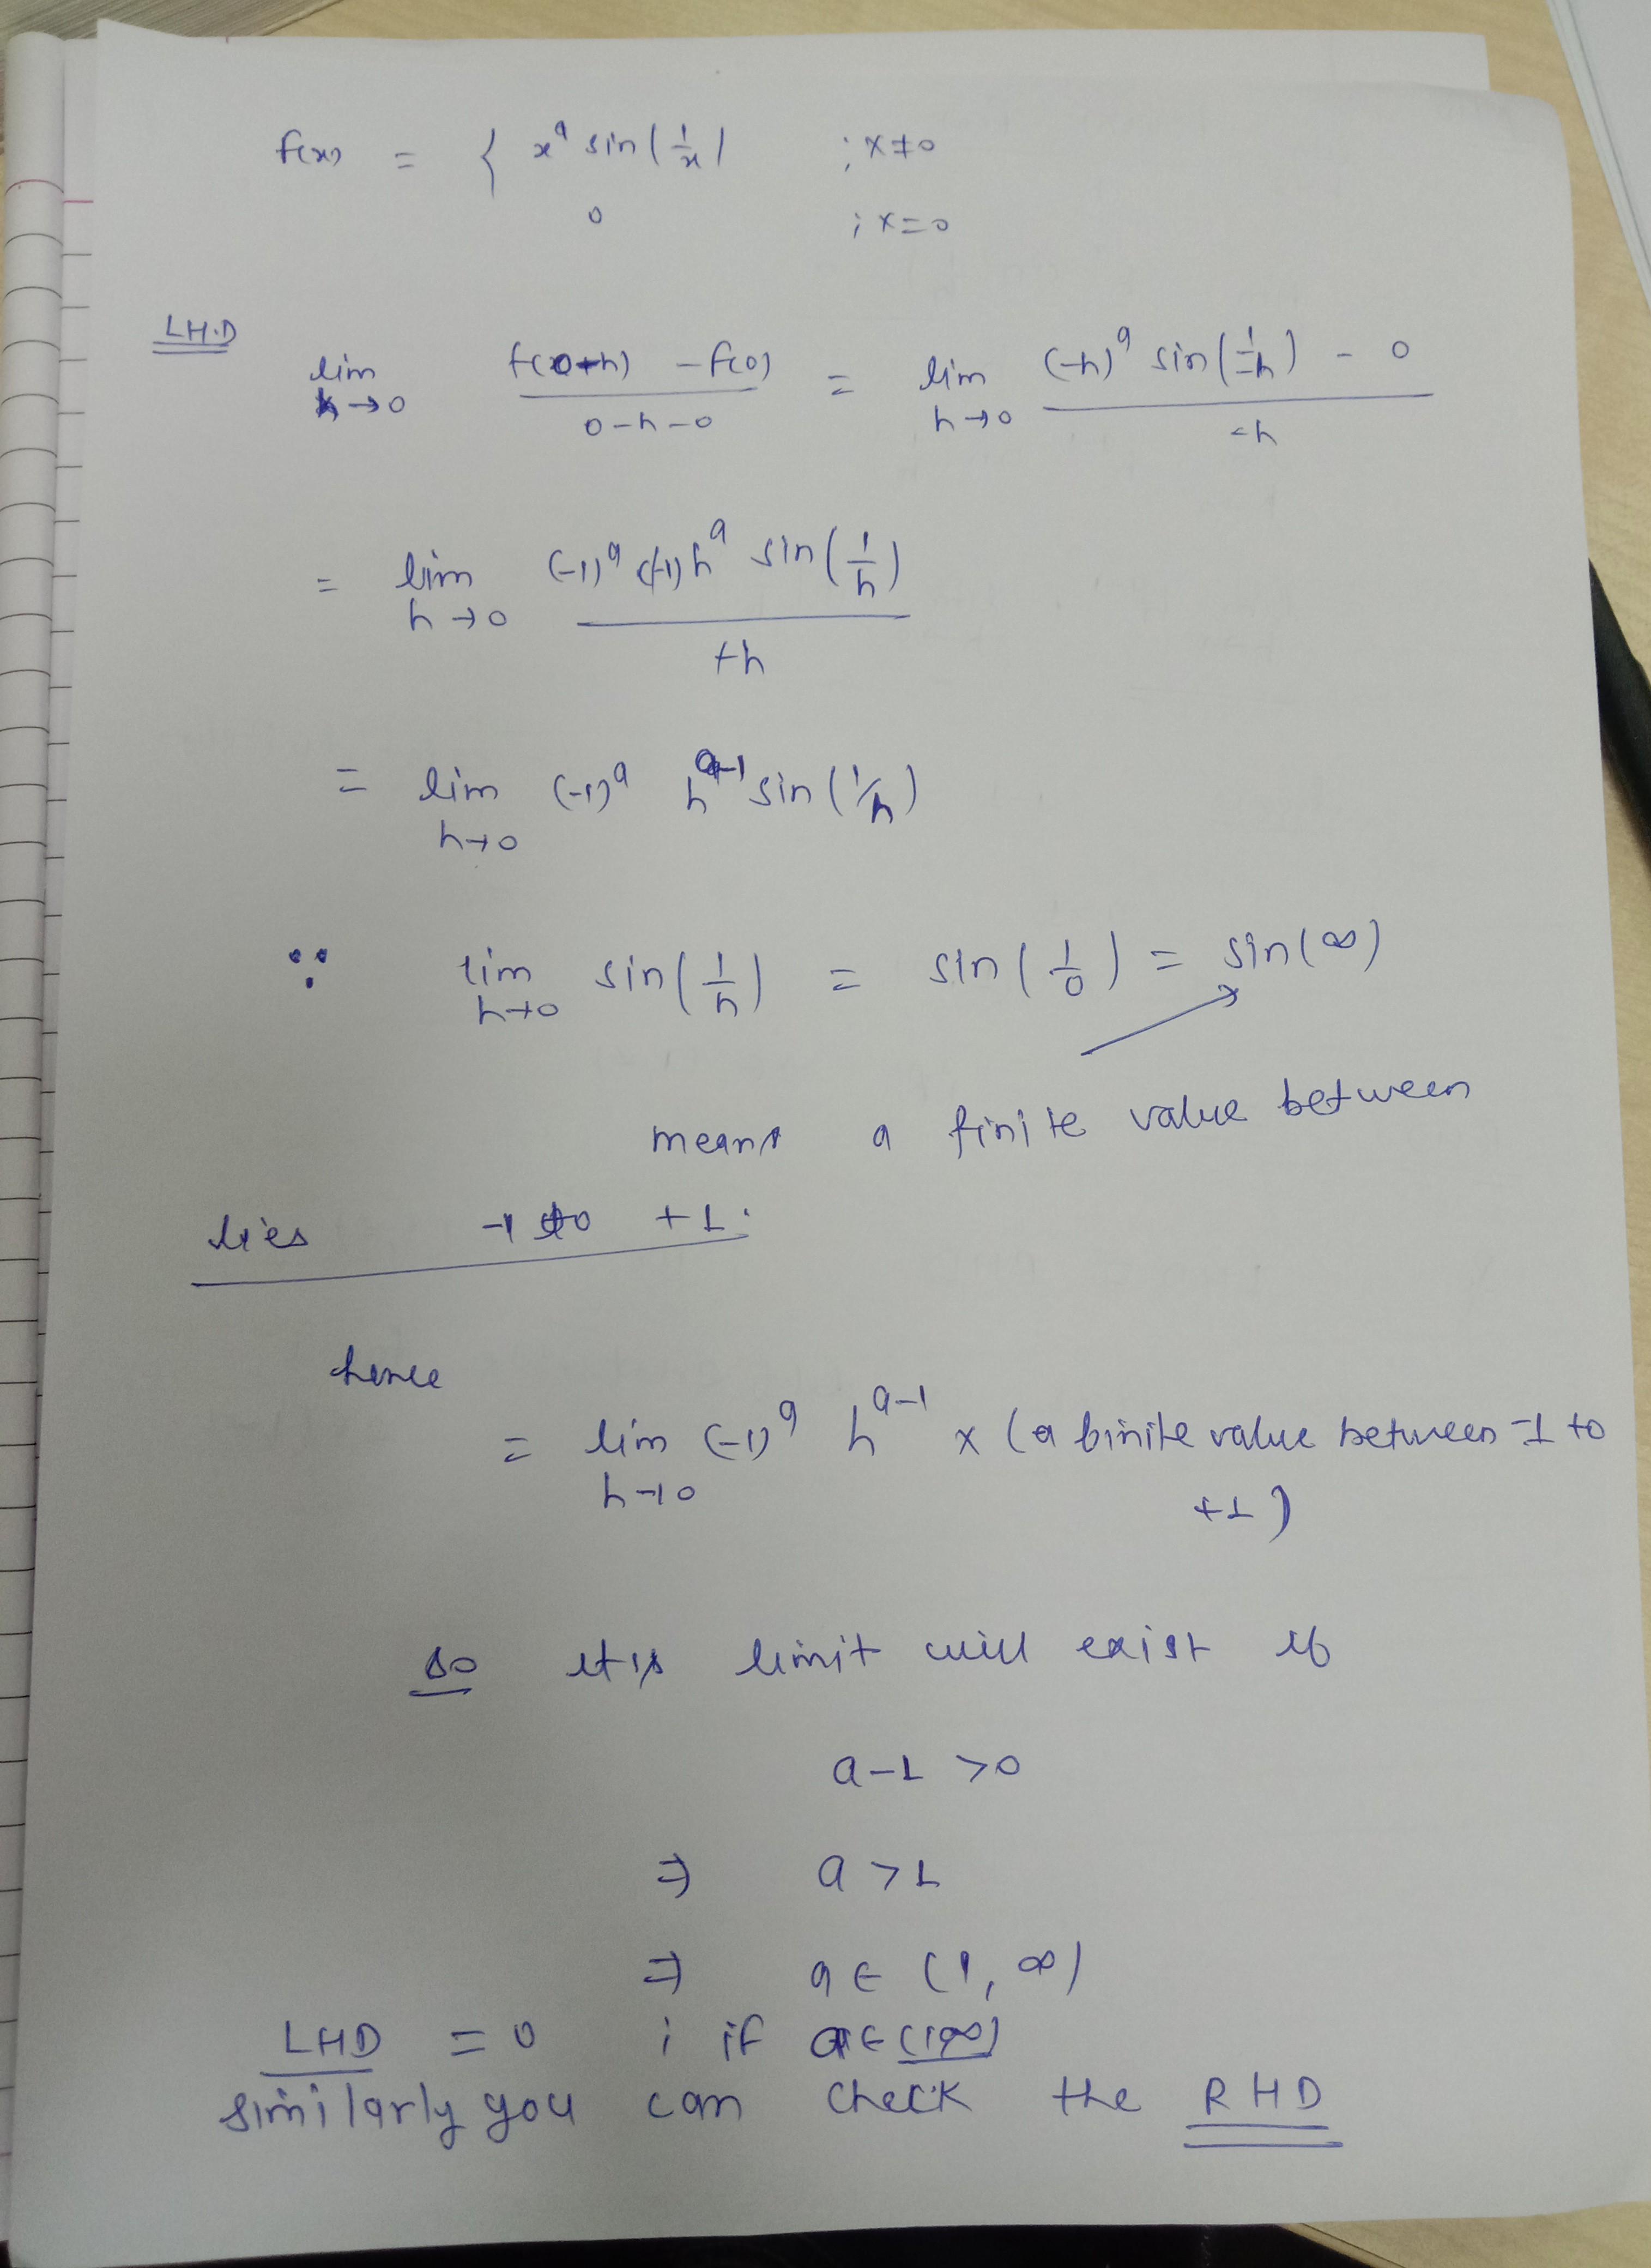 f(x) = { x^a sin(1/x) ; x≠0
0 ; x=0
LH.D
lim h→0 f(0-h) - f(0) / 0-h-0 = lim h→0 (-h)^a sin(1/-h) - 0 / -h
= lim h→0 (-1)^a (-1) h^a sin(1/h) / +h
= lim h→0 (-1)^a h^a-1 sin(1/h)
∵ lim h→0 sin(1/h) = sin(1/0) = sin(∞)
means a finite value between
lies -1 to +1.
hence
= lim h→0 (-1)^a h^a-1 x (a finite value between -1 to
+1)
so its limit will exist if
a-1 >0
⇒ a >1
⇒ a ∈ (1, ∞)
LHD = 0 ; if a∈(1,∞)
similarly you can check the RHD